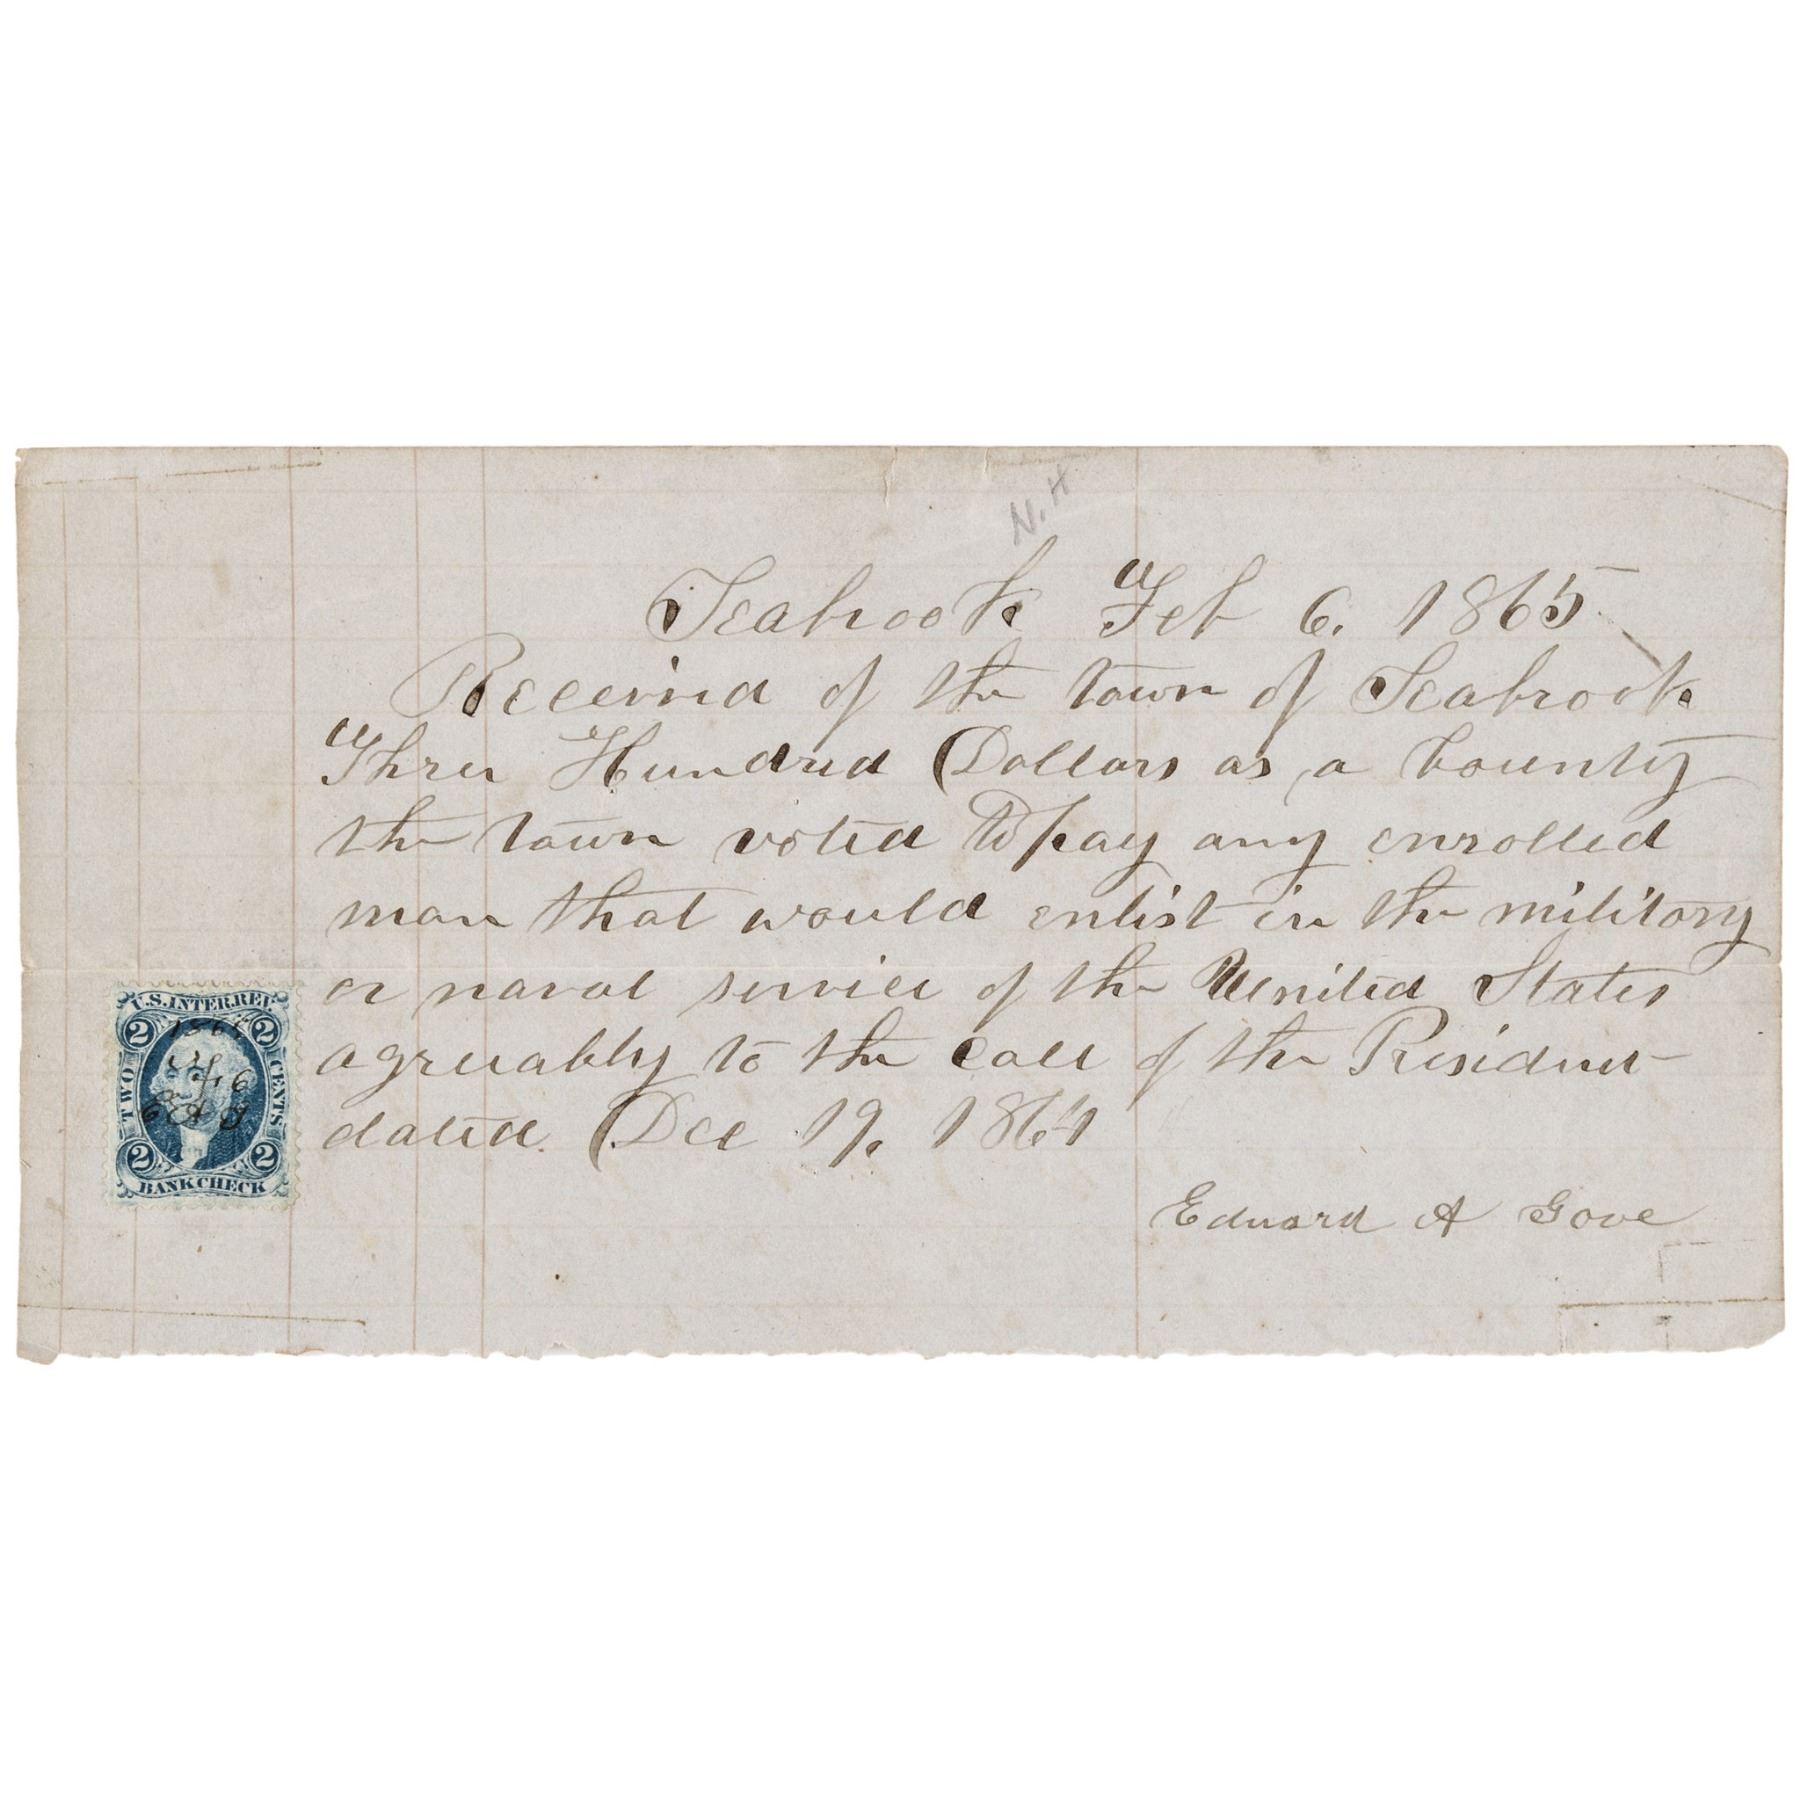 N.H
Seabrook Feb 6. 1865
Received of the town of Seabrook
Three Hundred Dollars as a bounty
the town voted to pay any enrolled
man that would enlist in the military
or naval service of the United States
agreeably to the call of the President
dated Dec 19. 1864
Edward A Gove
U.S. INTER. REV.
2 2
TWO CENTS
1865
Feb 6
E A G
2 2
BANK CHECK